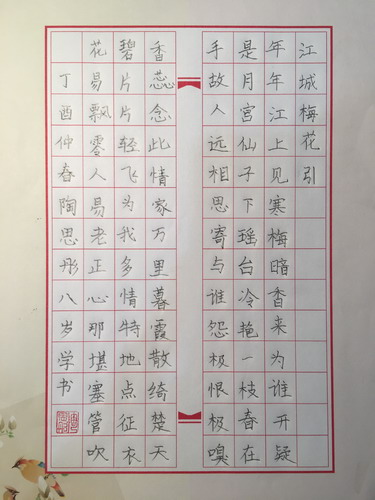 江城梅花引
年年江上见寒梅暗香来为谁开疑
是月宫仙子下瑶台冷艳一枝春在
手故人远相思寄与谁怨极恨极嗅
香蕊念此情家万里暮霞散绮楚天
碧片片轻飞为我多情特地点征衣
花易飘零人易老正心那堪塞管吹
丁酉仲春陶思彤八岁学书